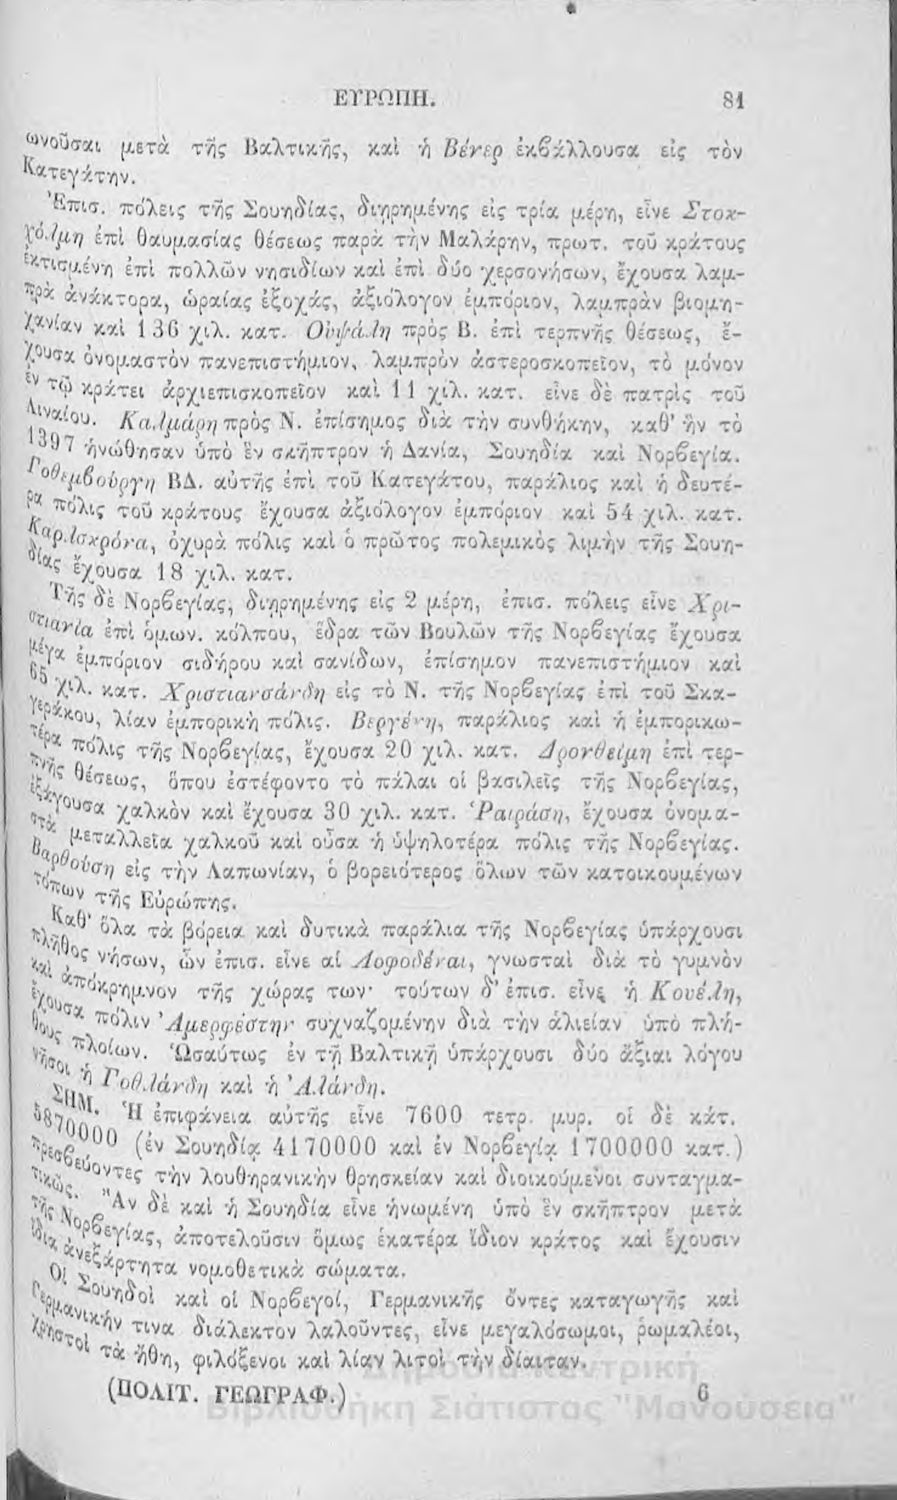 ΕΥΡΩΠΗ. 81
ωνοῦσαι μετὰ τῆς Βαλτικῆς, καὶ ἡ Βένερ ἐκβάλλουσα εἰς τὸν
Κατεγάτην.
Ἐπισ. πόλεις τῆς Σουηδίας, διῃρημένης εἰς τρία μέρη, εἶνε Στοκ-
χόλμη ἐπὶ θαυμασίας θέσεως παρὰ τὴν Μαλάρην, πρωτ. τοῦ κράτους
ἐκτισμένη ἐπὶ πολλῶν νησιδίων καὶ ἐπὶ δύο χερσονήσων, ἔχουσα λαμ-
πρὰ ἀνάκτορα, ὡραίας ἐξοχάς, ἀξιόλογον ἐμπόριον, λαμπρὰν βιομη-
χανίαν καὶ 136 χιλ. κατ. Οὐψάλη πρὸς Β. ἐπὶ τερπνῆς θέσεως, ἔ-
χουσα ὀνομαστὸν πανεπιστήμιον, λαμπρὸν ἀστεροσκοπεῖον, τὸ μόνον
ἐν τῷ κράτει ἀρχιεπισκοπεῖον καὶ 11 χιλ. κατ. εἶνε δὲ πατρὶς τοῦ
Λιναίου. Καλμάρη πρὸς Ν. ἐπίσημος διὰ τὴν συνθήκην, καθ' ἣν τὸ
1397 ἡνώθησαν ὑπὸ ἓν σκῆπτρον ἡ Δανία, Σουηδία καὶ Νορβεγία.
Γοθεμβούργη ΒΔ. αὐτῆς ἐπὶ τοῦ Κατεγάτου, παράλιος καὶ ἡ δευτέ-
ρα πόλις τοῦ κράτους ἔχουσα ἀξιόλογον ἐμπόριον καὶ 54 χιλ. κατ.
Καρλσκρόνα, ὀχυρὰ πόλις καὶ ὁ πρῶτος πολεμικὸς λιμὴν τῆς Σουη-
δίας ἔχουσα 18 χιλ. κατ.
Τῆς δὲ Νορβεγίας, διῃρημένης εἰς 2 μέρη, ἐπισ. πόλεις εἶνε Χρι-
στιανία ἐπὶ ὁμων. κόλπου, ἕδρα τῶν Βουλῶν τῆς Νορβεγίας ἔχουσα
μέγα ἐμπόριον σιδήρου καὶ σανίδων, ἐπίσημον πανεπιστήμιον καὶ
65 χιλ. κατ. Χριστιανσάνδη εἰς τὸ Ν. τῆς Νορβεγίας ἐπὶ τοῦ Σκα-
γεράκου, λίαν ἐμπορικὴ πόλις. Βεργένη, παράλιος καὶ ἡ ἐμπορικω-
τέρα πόλις τῆς Νορβεγίας, ἔχουσα 20 χιλ. κατ. Δρονθείμη ἐπὶ τερ-
πνῆς θέσεως, ὅπου ἐστέφοντο τὸ πάλαι οἱ βασιλεῖς τῆς Νορβεγίας,
ἐξάγουσα χαλκὸν καὶ ἔχουσα 30 χιλ. κατ. Ῥαιράση, ἔχουσα ὀνομα-
στὰ μεταλλεῖα χαλκοῦ καὶ οὖσα ἡ ὑψηλοτέρα πόλις τῆς Νορβεγίας.
Βαρθούση εἰς τὴν Λαπωνίαν, ὁ βορειότερος ὅλων τῶν κατοικουμένων
τόπων τῆς Εὐρώπης.
Καθ' ὅλα τὰ βόρεια καὶ δυτικὰ παράλια τῆς Νορβεγίας ὑπάρχουσι
πλῆθος νήσων, ὧν ἐπισ. εἶνε αἱ Λοφοδέναι, γνωσταὶ διὰ τὸ γυμνὸν
καὶ ἀπόκρημνον τῆς χώρας των· τούτων δ' ἐπισ. εἶνε ἡ Κουέλη,
ἔχουσα πόλιν Ἀμερφέστην συχναζομένην διὰ τὴν ἁλιείαν ὑπὸ πλή-
θους πλοίων. Ὡσαύτως ἐν τῇ Βαλτικῇ ὑπάρχουσι δύο ἄξιαι λόγου
νῆσοι ἡ Γοθλάνδη καὶ ἡ Ἀλάνδη.
ΣΗΜ. Ἡ ἐπιφάνεια αὐτῆς εἶνε 7600 τετρ. μυρ. οἱ δὲ κάτ.
5870000 (ἐν Σουηδίᾳ 4170000 καὶ ἐν Νορβεγίᾳ 1700000 κατ.)
πρεσβεύοντες τὴν λουθηρανικὴν θρησκείαν καὶ διοικούμενοι συνταγμα-
τικῶς. Ἂν δὲ καὶ ἡ Σουηδία εἶνε ἡνωμένη ὑπὸ ἓν σκῆπτρον μετὰ
τῆς Νορβεγίας, ἀποτελοῦσιν ὅμως ἑκατέρα ἴδιον κράτος καὶ ἔχουσιν
ἴδια ἀνεξάρτητα νομοθετικὰ σώματα.
Οἱ Σουηδοὶ καὶ οἱ Νορβεγοί, Γερμανικῆς ὄντες καταγωγῆς καὶ
Γερμανικήν τινα διάλεκτον λαλοῦντες, εἶνε μεγαλόσωμοι, ῥωμαλέοι,
χρηστοὶ τὰ ἤθη, φιλόξενοι καὶ λίαν λιτοὶ τὴν δίαιταν.
(ΠΟΛΙΤ. ΓΕΩΓΡΑΦ.) 6
Δημόσια Κεντρική
Βιβλιοθήκη Σιάτιστας "Μανούσεια"